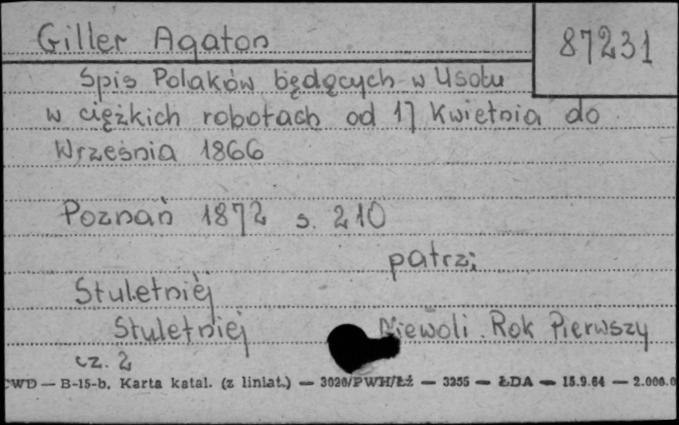 Giller Agaton
87231
Spis Polaków będących w Usolu
w ciężkich robotach od 17 Kwietnia do
Września 1866
Poznań 1872 s. 210
patrz:
Stuletniéj
Stuletniej Niewoli Rok Pierwszy
cz. 2
CWD — B-15-b. Karta katal. (z liniat.) — 3020/PWH/Łź — 3255 — ŁDA — 15.9.64 — 2.000.0